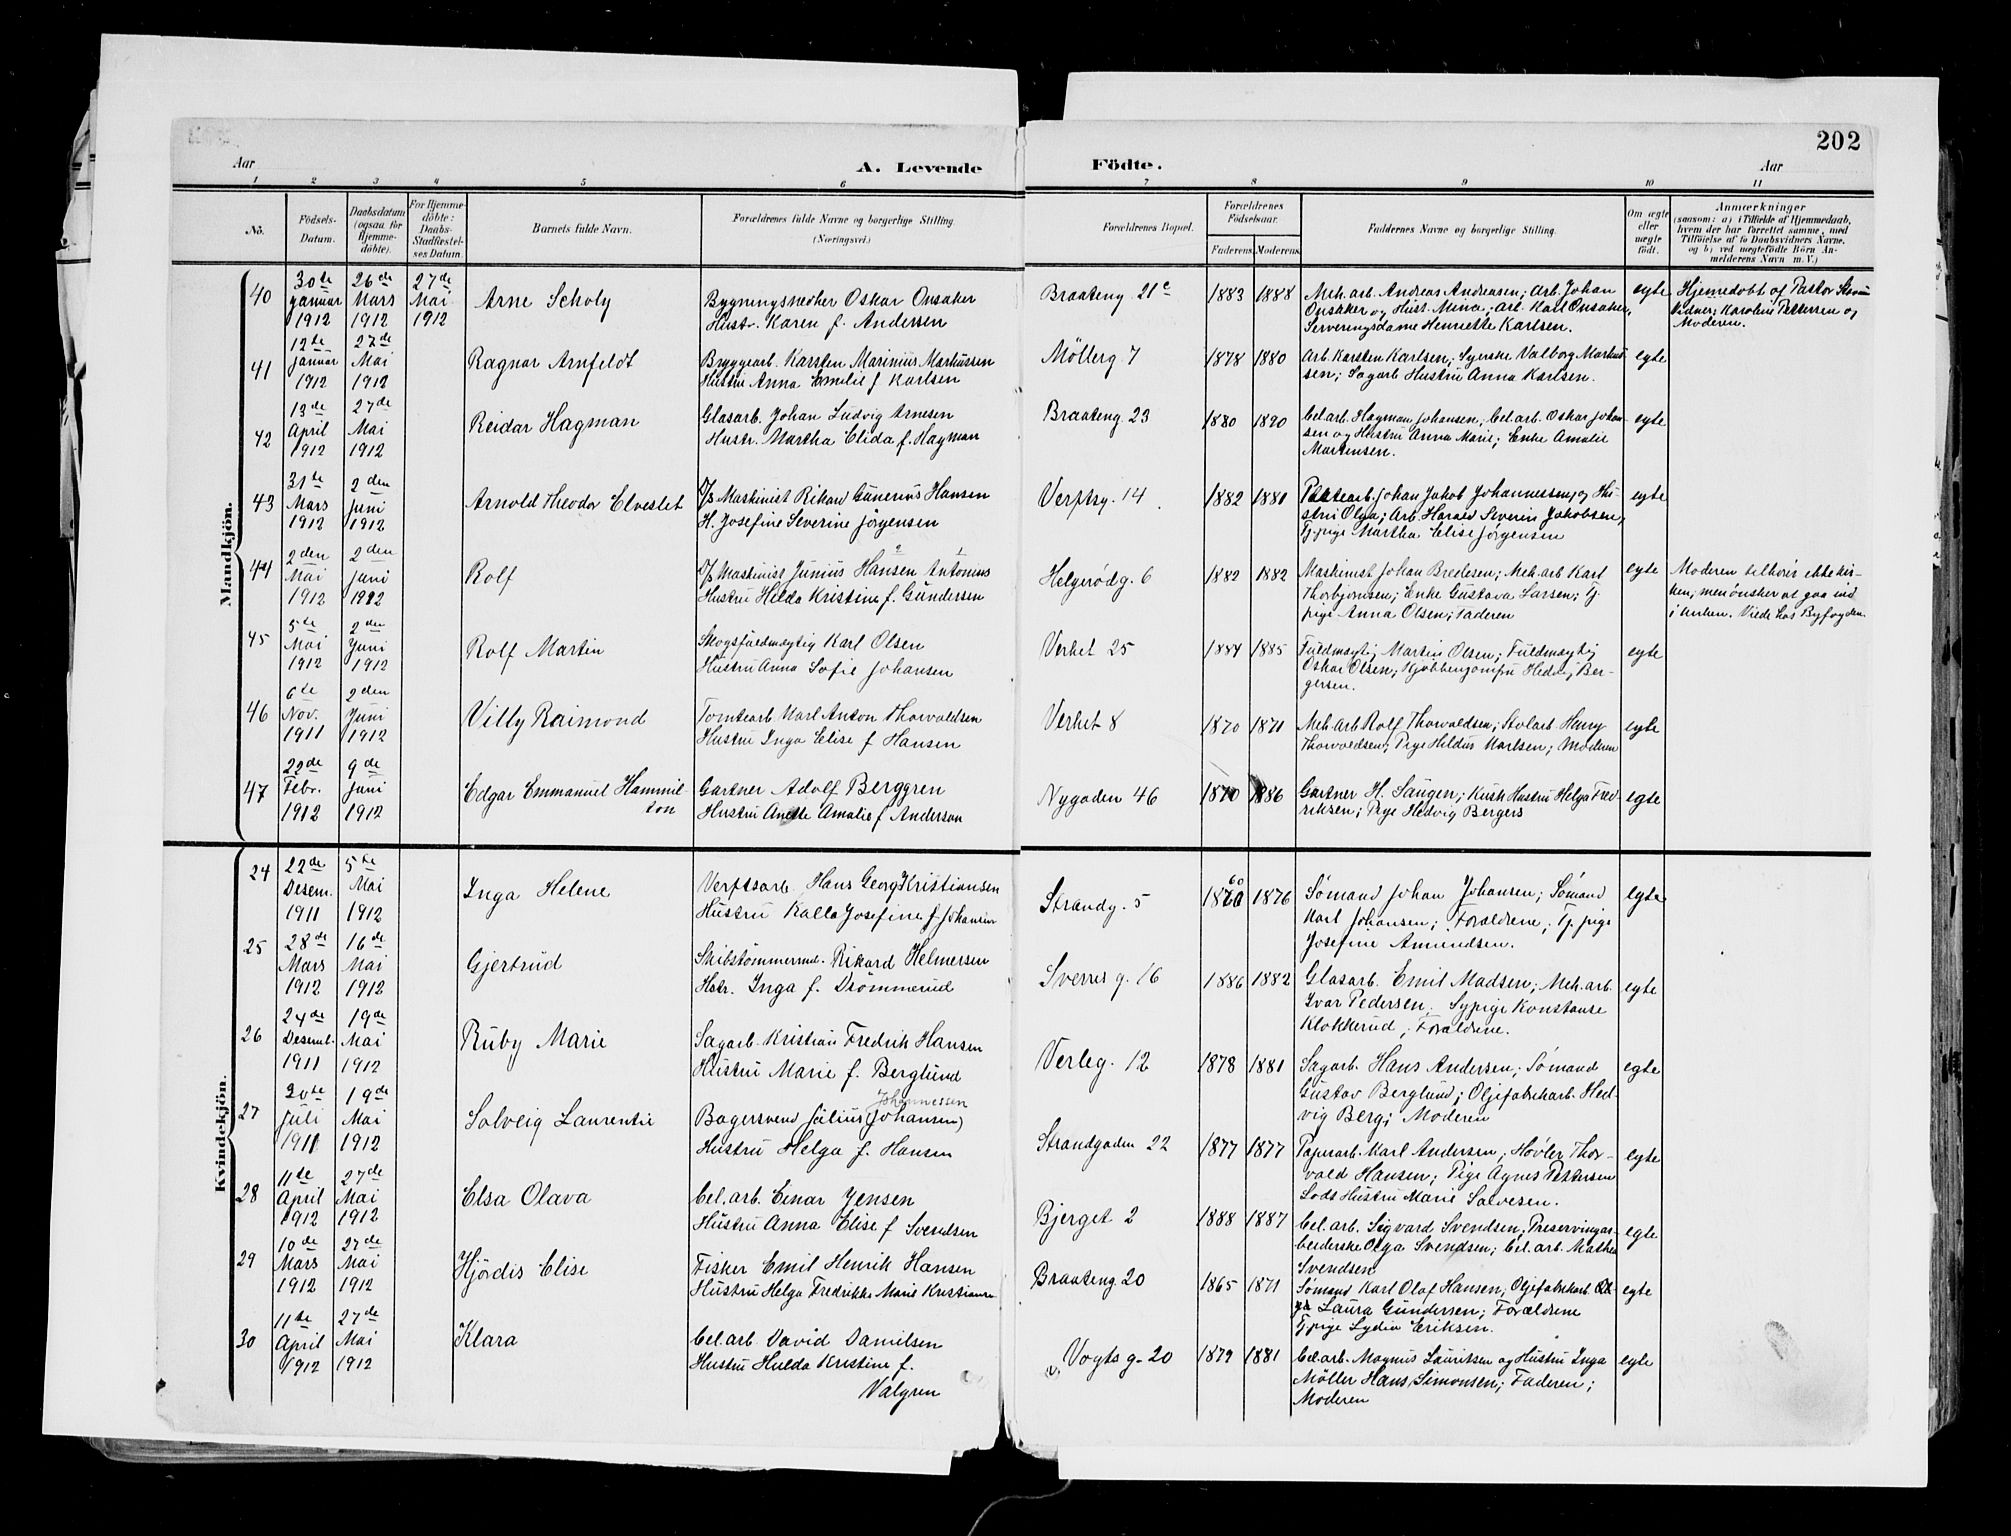 202
Aar
A. Levende
Födte.
Aar
1 2 3 4 5 6 7 8 9 10 11
No.
Födsels-
Datum.
Daabsdatum
(ogsaa for
Hjemme-
döbte).
For Hjemme-
döbte:
Daabs-
Stadfæstel-
ses Datum.
Barnets fulde Navn.
Forældrenes fulde Navne og borgerlige Stilling.
(Næringsvei.)
Forældrenes Bopæl.
Forældrenes
Födselsaar.
Faderens Moderens
Faddernes Navne og borgerlige Stilling.
Om ægte
eller
uægte
født.
Anmærkninger
(saasom: a) i Tilfælde af Hjemmedaab,
hvem der har forrettet samme, med
Tilföielse af to Daabsvidners Navne.
og b) ved uægtefödte Börn An-
melderens Navn m. V.)
Mandkjön.
40 30te Januar 1912 26de Mars 1912 27de Mai 1912 Arne Scholy
Bygningssnedker Oskar Onsaker
Hustr. Karen f. Andersen
Braateng. 21c 1883 1888
Mek. arb. Andreas Andreasen; Arb. Johan
Onsaker og Hust. Mina; Arb. Karl Onsaker,
Serveringsdame Henriette Karlsen.
egte
Hjemmedøbt af Pastor
Vidner: Karoline Pettersen og
Moderen.
41 12te Januar 1912 27de Mai 1912 Ragnar Arnfeldt
Bryggearb. Karsten Marinius Markussen
Hustru Anna Emilie f Karlsen
Möllerg. 7 1878 1880
Arb Karsten Karlsen; Syerske Valborg Markus
sen; Sagarb Hustru Anna Karlsen.
egte
42 13de April 1912 27de Mai 1912 Reidar Hagman
Glasarb. Johan Ludvig Arnesen
Hustr. Martha Elida f. Hagman
Braateng. 23 1880 1890
Cel.arb. Hagman Johansen; Cel.arb. Oskar Johan-
sen og Hustru Anna Marie; Enke Amalie
Martinsen.
egte
43 31te Mars 1912 2den Juni 1912 Arnold Theodor Elveslet
D/s Maskinist Rikard Gunerius Hansen
H. Josefine Severine Jörgensen
Verftsg. 14 1882 1880
Johan Jakob Johannessen og Hu-
stru Olga; Arb. Harald Severin Jakobsen,
Tj.pige Martha Elise Jörgensen
egte
44 2den Mai 1912 2den Juni 1912 Rolf
D/s Maskinist Junius Hansen Antonius
Hustru Hilda Kristine f. Gundersen
Helgerödg. 6 1882 1882
Maskinist Johan Bredesen; Mek. arb Karl
Thorbjornsen; Enke Gustava Larsen; Tj.
pige Anna Olsen; Faderen
egte
Moderen tilhører ikke kir-
ken, men ønsker at gaa ind
i kirken. Viede hos Byfogden.
45 5te Mai 1912 2den Juni 1912 Rolf Martin
Skogsfuldmægtig Karl Olsen
Hustru Anna Sofie Johansen
Verket 25 1884 1885
Fuldmægtig Martin Olsen; Fuldmægtig
Oskar Olsen; Hedvig Ber-
gersen.
egte
46 6te Nov. 1911 2den Juni 1912 Villy Raimond
Tomtearb Karl Anton Thorvaldsen
Hustru Inga Elise f Hansen
Verket 8 1870 1871
Mek. arb Rolf Thorvaldsen; Stolarb Henry
Thorvaldsen; Pige Hildur Karlsen; Moderen
egte
47 22de Febr. 1912 9de Juni 1912 Edgar Emmanuel Hammil-
ton
Gartner Adolf Berggren
Hustru Anette Amalie f Anderson
Nygaden 46 1870 1886
Gartner H. Saugen; Kusk Hustru Helga Fred-
riksen; Pige Hedvig Bergers
egte
Kvindekjön.
24 22de Desem. 1911 5te Mai 1912 Inga Helene
Verftsarb. Hans Georg Kristiansen
Hustru Kalla Josefine f Johansen
Strandg. 5 1860 1876
Sømand Johan Johansen; Sømand
Karl Johansen; Forældrene; Tj. pige
Josefine Amundsen.
egte
25 28de Mars 1912 16de Mai 1912 Gjertrud
Skibstömmermd. Rikard Helmersen
Hstr. Inga f. Drömmerud
Sverres g. 16 1886 1882
Glasarb. Emil Madsen; Mek. arb.
Ivar Pedersen, Sypige Konstanse
Klokkerud; Forældrene.
egte
26 24de Desemb. 1911 19de Mai 1912 Ruby Marie
Sagarb. Kristian Fredrik Hansen
Hustru Marie f. Berglund
Verleg. 12 1878 1881
Sagarb. Hans Andersen; Sømand
Gustav Berglund; Oljefabrikarb. Hed-
vig Berg; Moderen
egte
27 20te Juli 1911 19de Mai 1912 Solveig Laurentie
Johannessen
Bagersvend Julius (Johansen)
Hustru Helga f. Hansen
Strandgaden 22 1877 1877
Papirarb. Karl Andersen, Høvler Thor-
vald Hansen; Pige Agnes Pettersen
Lods Hustru Marie Salvesen.
egte
28 11te April 1912 27de Mai 1912 Elsa Olava
Cel.arb. Einar Jensen
Hustru Anna Elise f Svendsen
Bjerget 2 1888 1887
Cel.arb. Sigvard Svendsen; Preservingar-
beiderske Olga Svendsen; Cel. arb. Mathea
Svendsen
egte
29 10de Mars 1912 27de Mai 1912 Hjördis Elise
Fisker Emil Henrik Hansen
Hustru Helga Fredrikke Marie Kristiansen
Braateng. 20 1865 1871
Sømand Karl Olaf Hansen, Oljefabrikarb. Ol-
ga Laura Gundersen; Forældrene
Tj.pige Lydia Eriksen.
egte
30 11te April 1912 27de Mai 1912 Klara
Cel.arb. David Danielsen
Hustru Hulda Kristine f.
Valgren
Vogts g. 20 1879 1881
Cel.arb. Magnus Lauritsen og Hustru Inga
Möller Hans Simonsen; Faderen;
Moderen
egte